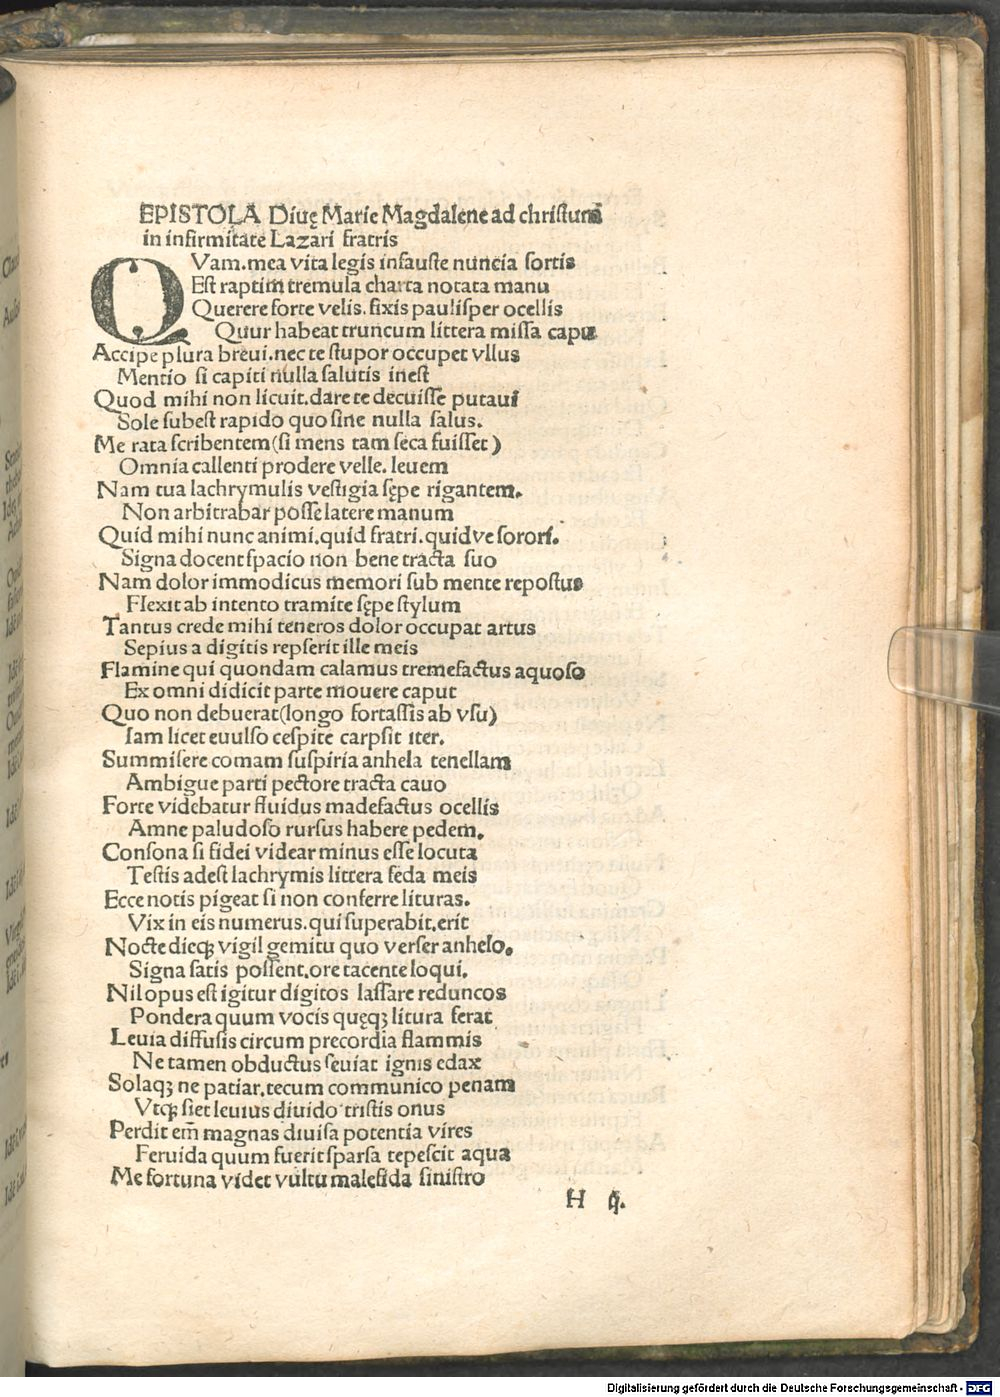 EPISTOLA Diuę Marie Magdalene ad christum
in infirmitate Lazari fratris
QVam.mea vita legis infauste nuncia sortis
Est raptim tremula charta notata manu
Querere forte velis.fixis paulisper ocellis
Quur habeat truncum littera missa caput
Accipe plura breui.nec te stupor occupet vllus
Mentio si capiti nulla salutis inest
Quod mihi non licuit.dare te decuisse putaui
Sole subest rapido quo sine nulla salus.
Me rata scribentem(si mens tam seca fuisset)
Omnia callenti prodere velle.leuem
Nam tua lachrymulis vestigia sępe rigantem.
Non arbitrabar posse latere manum
Quid mihi nunc animi.quid fratri.quidve sorori.
Signa docent spacio non bene tracta suo
Nam dolor immodicus memori sub mente repostus
Flexit ab intento tramite sępe stylum
Tantus crede mihi teneros dolor occupat artus
Sepius a digitis repserit ille meis
Flamine qui quondam calamus tremefactus aquoso
Ex omni didicit parte mouere caput
Quo non debuerat(longo fortassis ab vsu)
Iam licet euulso cespite carpsit iter.
Summisere comam suspiria anhela tenellam
Ambigue parti pectore tracta cauo
Forte videbatur fluidus madefactus ocellis
Amne paludoso rursus habere pedem.
Consona si fidei videar minus esse locuta
Testis adest lachrymis littera feda meis
Ecce notis pigeat si non conferre lituras.
Vix in eis numerus.qui superabit.erit
Nocte dieqꝫ vigil gemitu quo verser anhelo.
Signa satis possent.ore tacente loqui.
Nil opus est igitur digitos lassare reduncos
Pondera quum vocis quęqꝫ litura ferat
Leuia diffusis circum precordia flammis
Ne tamen obductus seuiat ignis edax
Solaqꝫ ne patiar.tecum communico penam
Vtqꝫ siet leuius diuido tristis onus
Perdit em̃ magnas diuisa potentia vires
Feruida quum fuerit sparsa tepescit aqua
Me fortuna videt vultu malefida sinistro
H ꝗ.
Digitalisierung gefördert durch die Deutsche Forschungsgemeinschaft - DFG